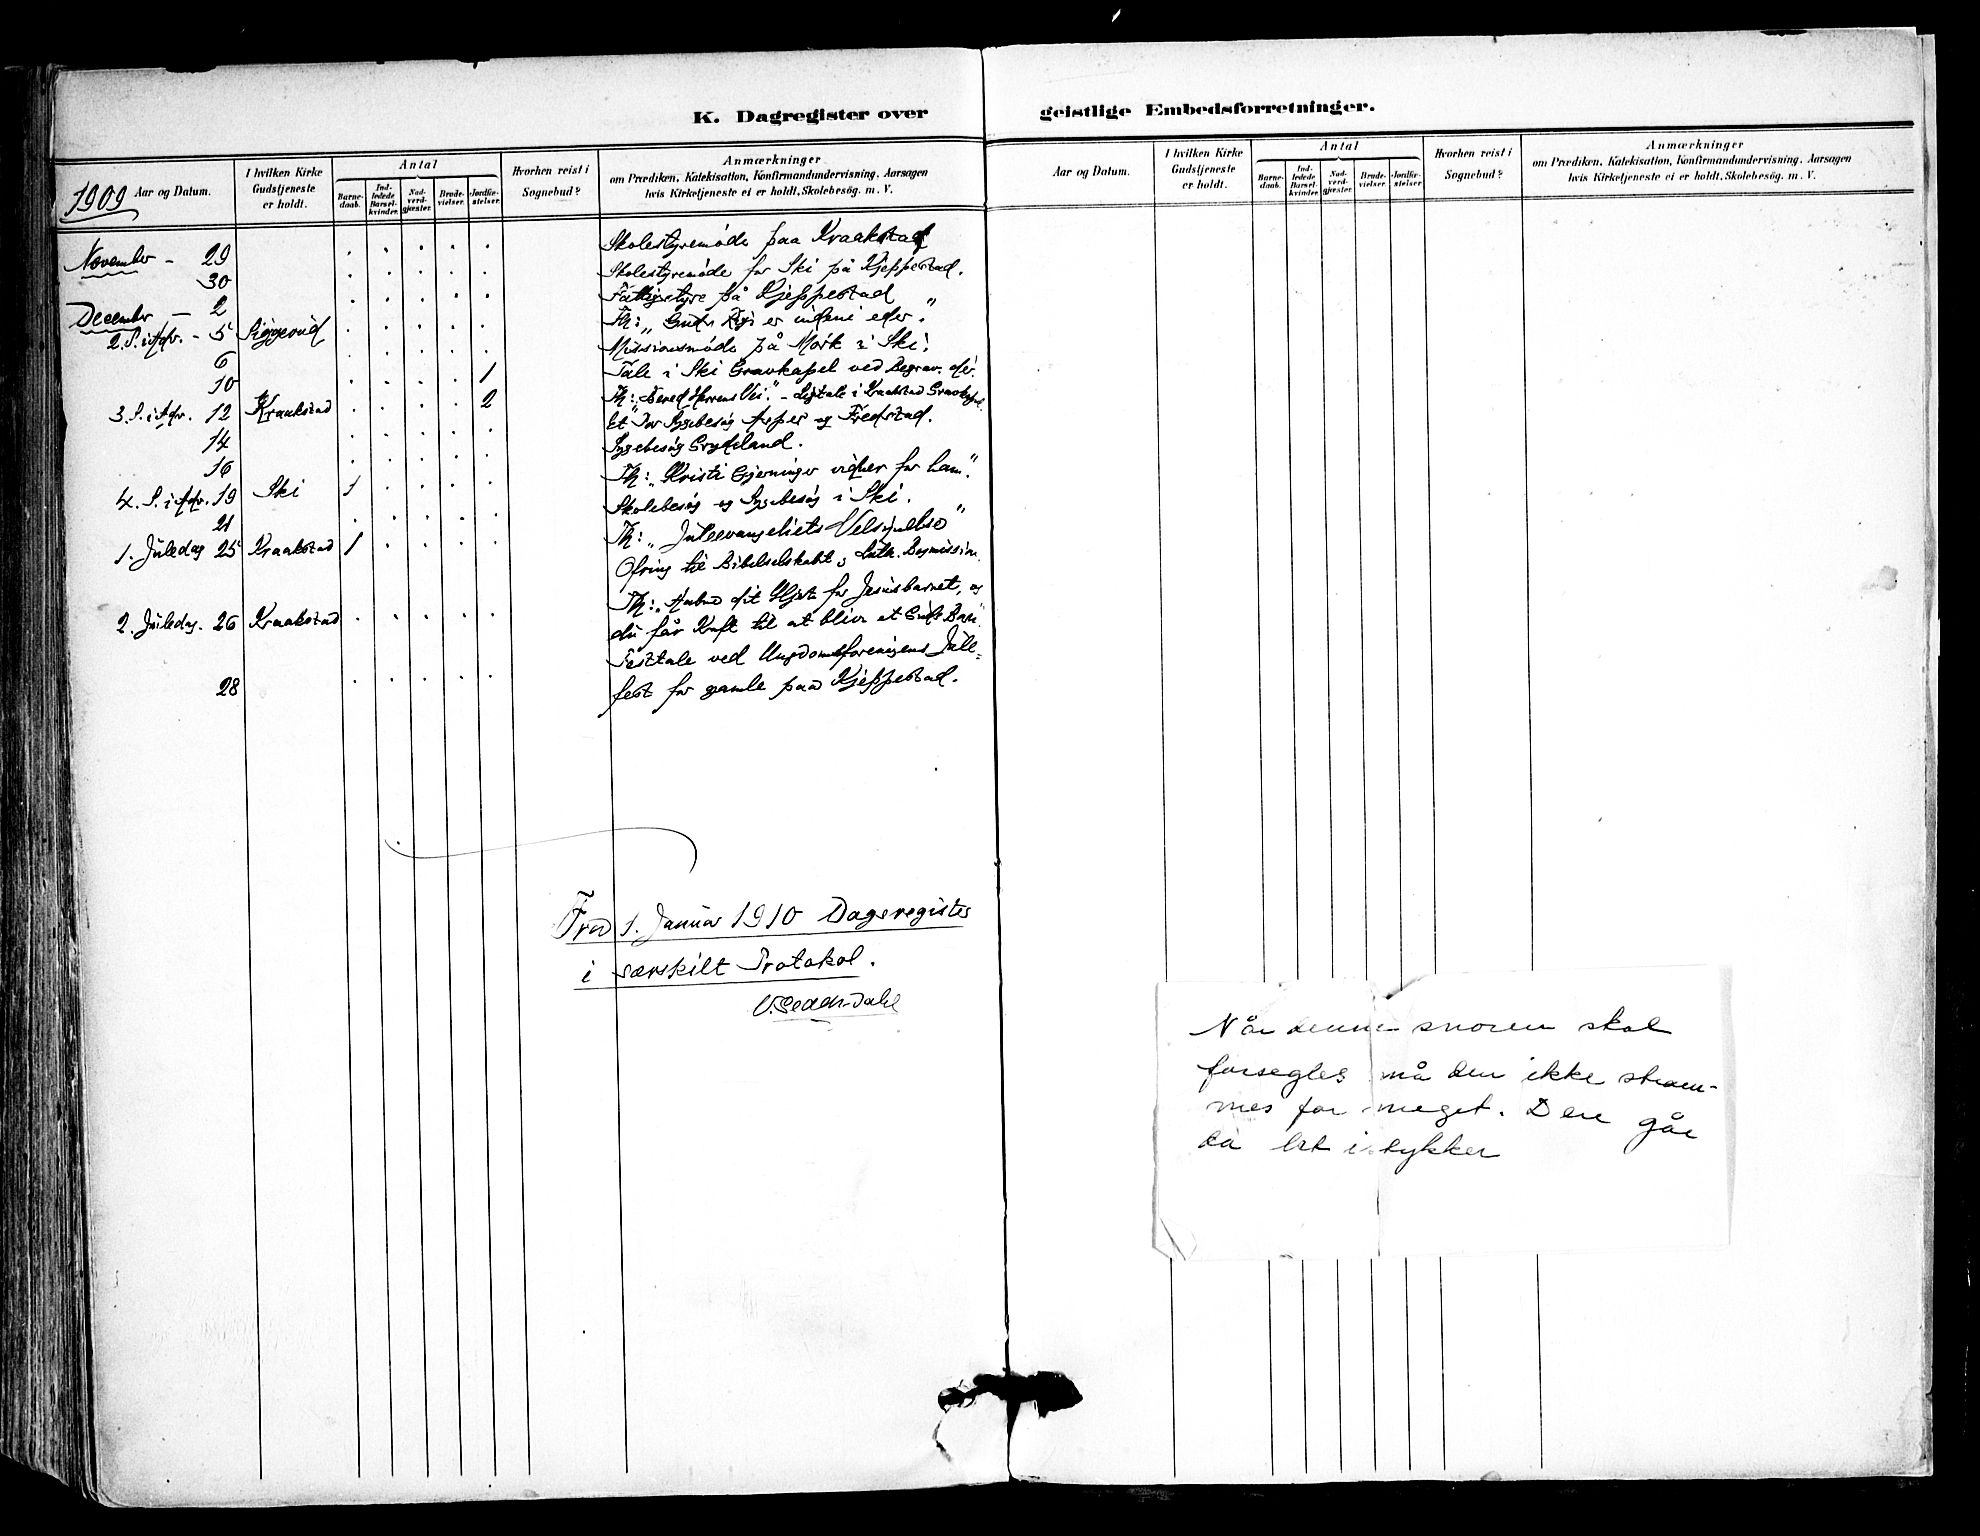 K. Dagregister over geistlige Embedsforretninger.
1909 Aar og Datum.
I hvilken Kirke Gudstjeneste er holdt.
Antal
Barnedaab.
Indledede Barselkvinder.
Nadverdgjæster.
Brudevielser.
Jordfæstelser.
Hvorhen reist i Sognebud?
Anmærkninger
om Prædiken, Katekisation, Konfirmandundervisning, Aarsagen
hvis Kirketjeneste ei er holdt, Skolebesøg. m. V.
November - 29 Skolestyremøde paa Kraakstad
30 Skolestyremøde for Ski på Kjeppestad.
December - 2 Fattigstyre på Kjeppestad
2. S. i Adv. - 5 Siggerud Th: "Guds Rige er indeni eder."
6 Missionsmøde på Mork i Ski.
10 1 Tale i Ski Gravkapel ved Begrav.
3. S. i Adv. 12 Kraakstad 2 Th: "Bered Herrens Vei." - Ligtale i Kraakstad Gravkapel.
14 Sygebesøg og Fredstad.
16 Sygebesøg Grydeland.
4. S. i Adv. 19 Ski 1 Th: "Kristi Gjerninger vidner for ham".
21 Skolebesøg og Sygebesøg i Ski.
1. Juledag 25 Kraakstad 1 Th: "Juleevangeliets Velsignelse"
Ofring til Bibelselskabet,
2. Juledag. 26 Kraakstad Th: dit Hjerte for Jesusbarnet, og
du får Kraft til at blive et Guds Barn.
Festtale ved Ungdomsforeningens Jule=
28 fest for gamle paa Kjeppestad.
Fra 1. Januar 1910 Dagsregister
i særskilt Protokol.
Aar og Datum.
I hvilken Kirke Gudstjeneste er holdt.
Antal
Barnedaab.
Indledede Barselkvinder.
Nadverdgjæster.
Brudevielser.
Jordfæstelser
Hvorhen reist i Sognebud?
Anmærkninger
om Prædiken, Katekisation, Konfirmandundervisning, Aarsagen
hvis Kirketjeneste ei er holdt, Skolebesøg. m. V.
Når denne snoren skal
forsegles må den ikke stram-
mes for meget. Den går
da lett istykker